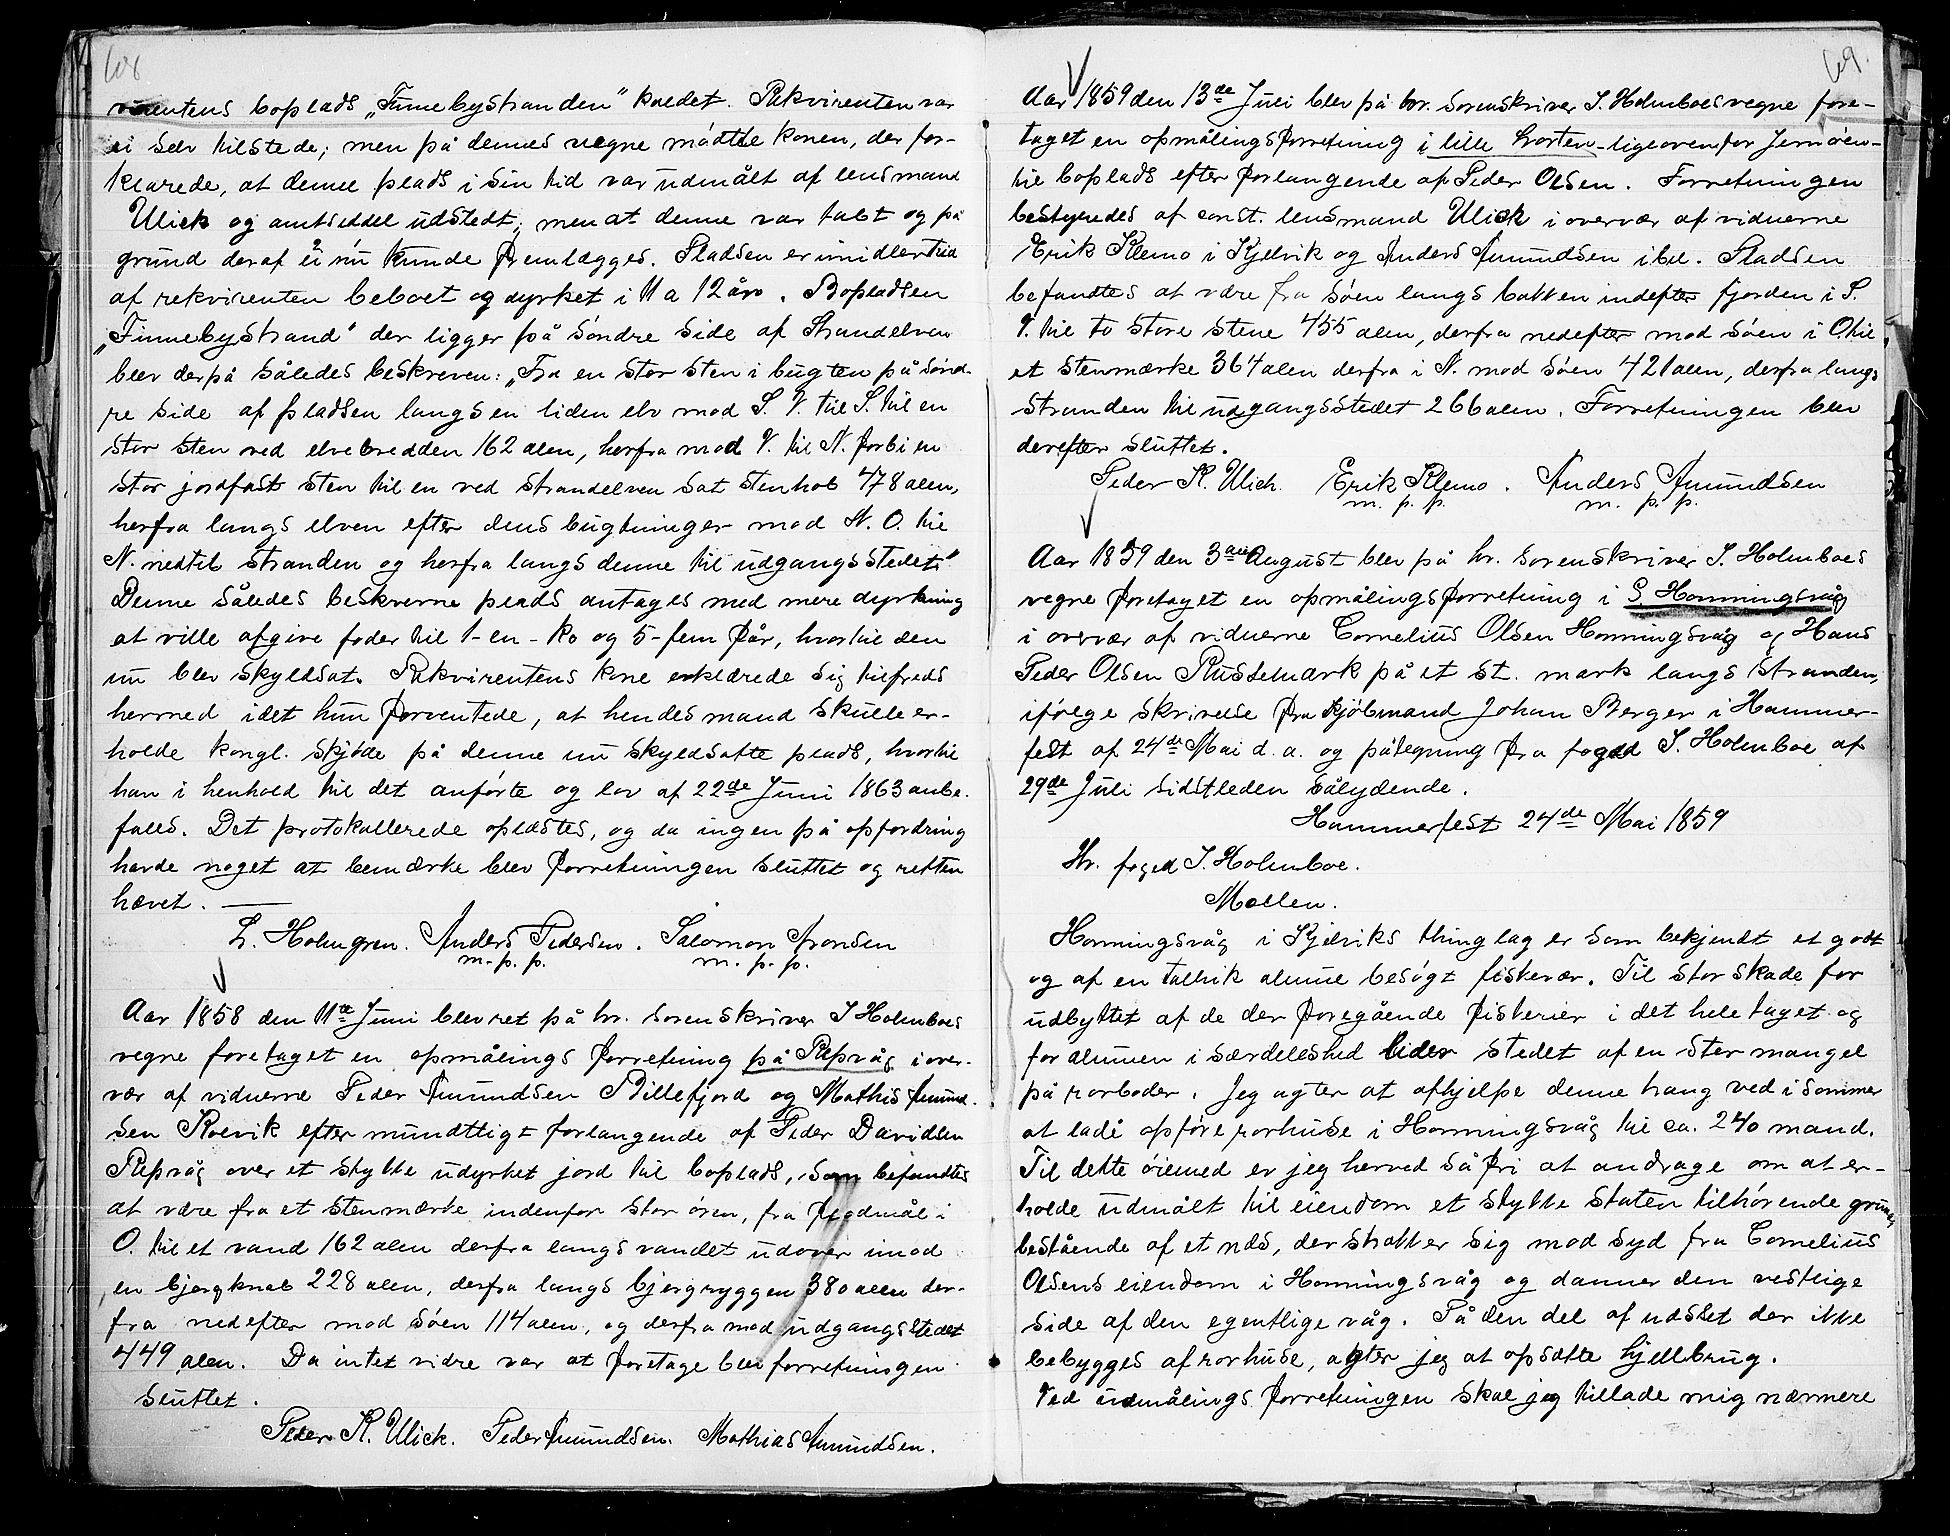 68
virentens boplads „Finnebystranden" kaldet. Rekvirenten var
ei selv tilstede; men på dennes vegne mødtte konen, der for-
klarede, at denne plads i sin tid var udmålt af lensmand
Ulich og amtseddel udstedt; men at denne var tabt og på
grund deraf ei nú kunde fremlægges. Pladsen er imidlertid
af rekvirenten beboet og dyrket i 11 a 12 år. Bopladsen
„Finnebystrand" der ligger på søndre side af Strandelven
blev derpå således beskreven: „Fra en stor sten i bugten på sønd-
re side af pladsen langs en liden elv mod S. V. til S. til en
stor sten ved elvebredden 162 alen, herfra mod V. til N. forbi en
stor jordfast sten til en ved strandelven sat stenhob 478 alen,
herfra langs elven efter dens bugtninger mod N. O. til
N. nedtil stranden og herfra langs denne til udgangsstedet."
Denne således beskrevne plads antages med mere dyrkning
at ville afgive foder til 1-en-ko og 5-fem får, hvortil den
nu blev skyldsat. Rekvirentens kone erklærede sig tilfreds
hermed idet hun forventede, at hendes mand skulle er-
holde kongl. skjøde på denne nu skyldsatte plads, hvortil
han i henhold til det anførte og lov af 22de Juni 1863 anbe-
fales. Det protokollerede oplæstes, og da ingen på opfordring
havde noget at bemærke blev forretningen sluttet og retten
hævet.
L. Holmgren. Anders Pedersen. Salomon Aronsen
m. p. p. m. p. p.
Aar 1858 den 11te Juni blev ret på hr. sorenskriver J Holmboes
vegne foretaget en opmålings forretning på Repvåg i over-
vær af vidnerne Peder Amundsen Billefjord og Mathis Amund-
sen Koevik efter mundtligt forlangende af Peder Davidsen
Repvåg over et stykke udyrket jord til boplads, som befandtes
at være fra et stenmærke indenfor stor øren, fra flodmål i
O. til et vand 162 alen derfra langs vandet udover imod
en bjergknab 228 alen, derfra langs bjergryggen 380 alen der-
fra nedefter mod søen 114 alen, og derfra mod udgangsstedet
449 alen. Da intet vidre var at foretage blev forretningen
sluttet.
Peder K. Ulich. Peder Amundsen. Mathias Amundsen.
69.
Aar 1859 den 13de Juli blev på hr. sorenskriver J. Holmboes vegne fore-
taget en opmålingsforretning i lille Porten-ligeovenfor Jernøen-
til boplads efter forlangende af Peder Olsen. Forretningen
bestyredes af const. lensmand Ulich i overvær af vidnerne
Erik Klemo i Kjelvik og Anders Amundsen ibd. Pladsen
befandtes at være fra søen langs bakken indefter fjorden i S.
V. til to store stene 455 alen, derfra nedefter mod søen i O. til
et stenmærke 364 alen derfra i N. mod søen 421 alen, derfra langs
stranden til udgangsstedet 266 alen. Forretningen blev
derefter sluttet.
Peder K. Ulich. Erik Klemo. Anders Amundsen
m. p. p. m. p. p.
Aar 1859 den 3die August blev på hr. sorenskriver J. Holmboes
vegne foretaget en opmålingsforretning i S. Honningsvåg
i overvær af vidnerne Cornelius Olsen Honningsvåg og Hans
Peder Olsen Russemark på et st. mark langs stranden,
ifølge skrivelse fra kjøbmand Johan Berger i Hammer-
fest af 24de Mai d. a. og påtegning fra foged J. Holmboe af
29de Juli sidstleden sålydende.
Hammerfest 24de Mai 1859
Hr. foged J. Holmboe.
Mollen.
Honningsvåg i Kjelviks thinglag er som bekjendt et godt
og af en talrik almue besøgt fiskevær. Til stor skade for
udbyttet af de der foregående fiskerier i det hele taget og
for almuen i særdeleshed lider stedet af en stor mangel
på rorboder. Jeg agter at afhjelpe denne trang ved i sommer
at lade opføre rorhuse i Honningsvåg til ca. 240 mand.
Til dette øiemed er jeg herved så fri at andrage om at er-
holde udmålt til eiendom et stykke staten tilhørende grund
bestående af et næs, der strækker sig mod syd fra Cornelius
Olsens eiendom i Honningsvåg og danner den vestlige
side af den egentlige våg. På den del af næsset der ikke
bebygges af rorhuse, agter jeg at opsætte hjellbrug.
Ved udmålings forretningen skal jeg tillade mig nærmere